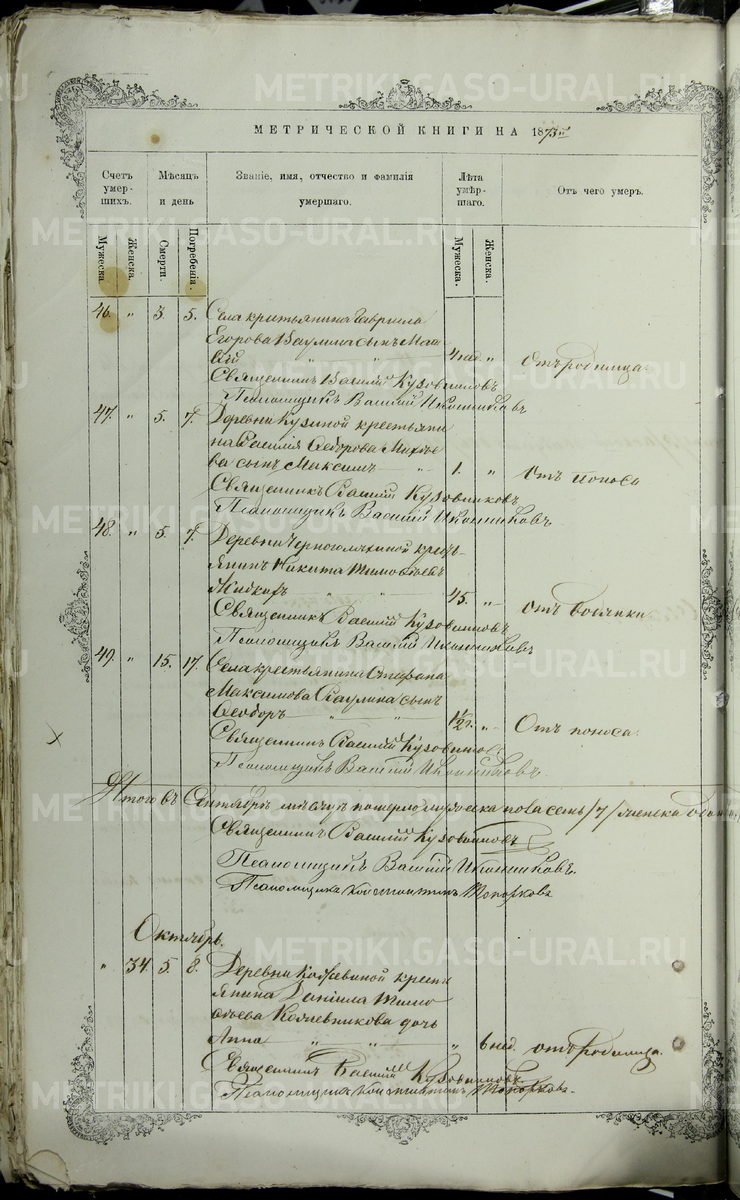 МЕТРИЧЕСКОЙ КНИГИ НА 1873й
Счетъ умер-шихъ.
Мѣсяцъ и день
Званіе, имя, отчество и фамилія умершаго.
Лѣта умер-шаго.
Отъ чего умеръ.
Мужеска.
Женска.
Смерти.
Погребенія.
Мужеска.
Женска.
46. " 3. 5. Села крестьянина Гаврила
Егорова Ваулина сынъ
4 нед. " Отъ родимца.
Священникъ Василій Кузовниковъ
Псаломщикъ Василій Иконниковъ
47. " 5. 7. Деревни крестьяни
на Василія Ѳедорова
ва сынъ Максимъ " 1. " Отъ поноса
Священникъ Василій Кузовниковъ
Псаломщикъ Василій Иконниковъ
48. " 5. 7. Деревни кресть
янинъ Никита Тимоѳѣевъ
" " 45. " Отъ
Священникъ Василій Кузовниковъ
Псаломщикъ Василій Иконниковъ
49. " 15. 17. Села крестьянина Стефана
Максимова Ваулина сынъ
Ѳеодоръ " " 1/2 " Отъ поноса.
Священникъ Василій Кузовниковъ
Псаломщикъ Василій Иконниковъ
Итого въ Сентябрѣ мѣсяцѣ померло мужеска пола семь /7/ женска
Священникъ Василій Кузовниковъ
Псаломщикъ Василій Иконниковъ.
Псаломщикъ Константинъ Топорковъ
Октябрь.
" 34. 5. 8. Деревни Кожевиной крестья
янина Даніила Тимо
ѳѣева Кожевникова дочь
Анна " " " 6 нед. отъ родимца.
Священникъ Василій Кузовниковъ
Псаломщикъ Константинъ Топорковъ
METRIKI.GASO-URAL.RU